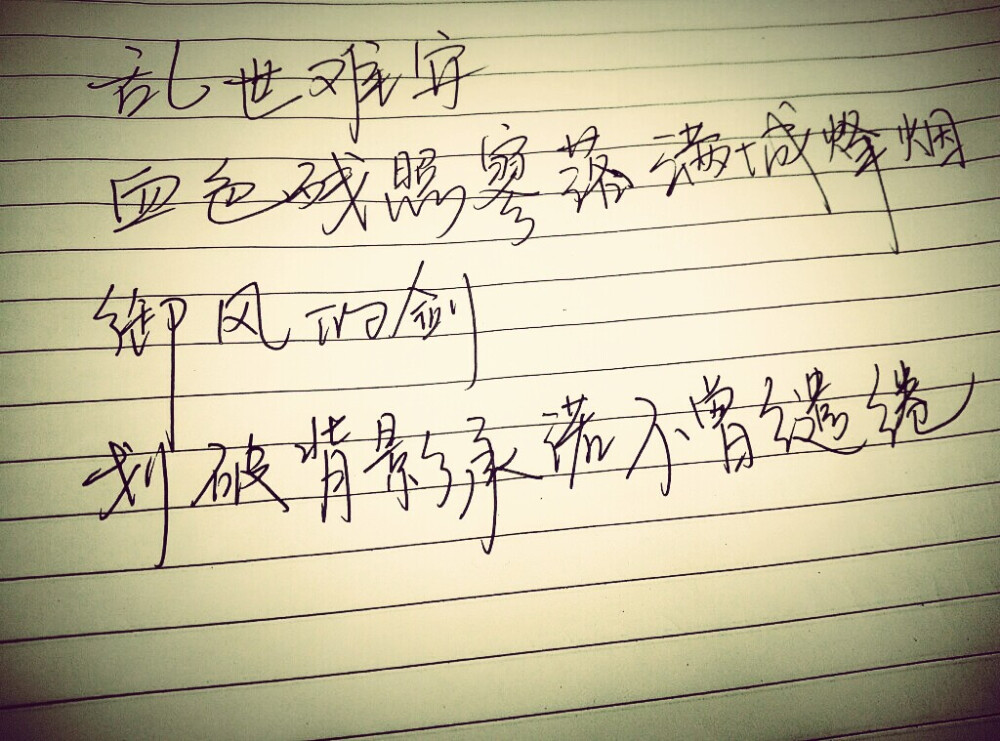 乱世难宁
血色残照寥落满城烽烟
御风的剑
划破背影承诺不曾缱绻